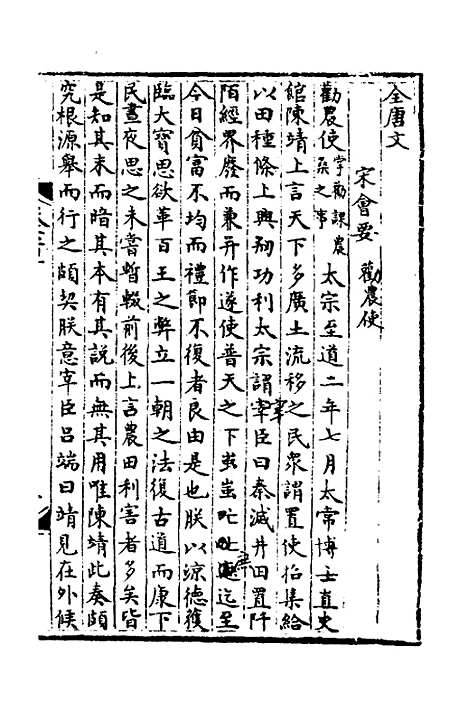 全唐文
宋會要 勸農使
勸農使掌勸課農桑之事 太宗至道二年七月太常博士直史
館陳靖上言天下多廣土流移之民衆謂置使招集給
以田種條上興剏功利太宗謂宰臣曰秦滅井田置阡
陌經界廢而兼并作遂使普天之下蚩蚩
今日貧富不均而禮節不復者良由是也朕以涼德獲
臨大寶思欲革百王之弊立一朝之法復古道而康下
民晝夜思之未嘗暫輟前後上言農田利害者多矣皆
是知其末而暗其本有其說而無其用唯陳靖此奏頗
究根源舉而行之頗契朕意宰臣呂端曰靖見在外候